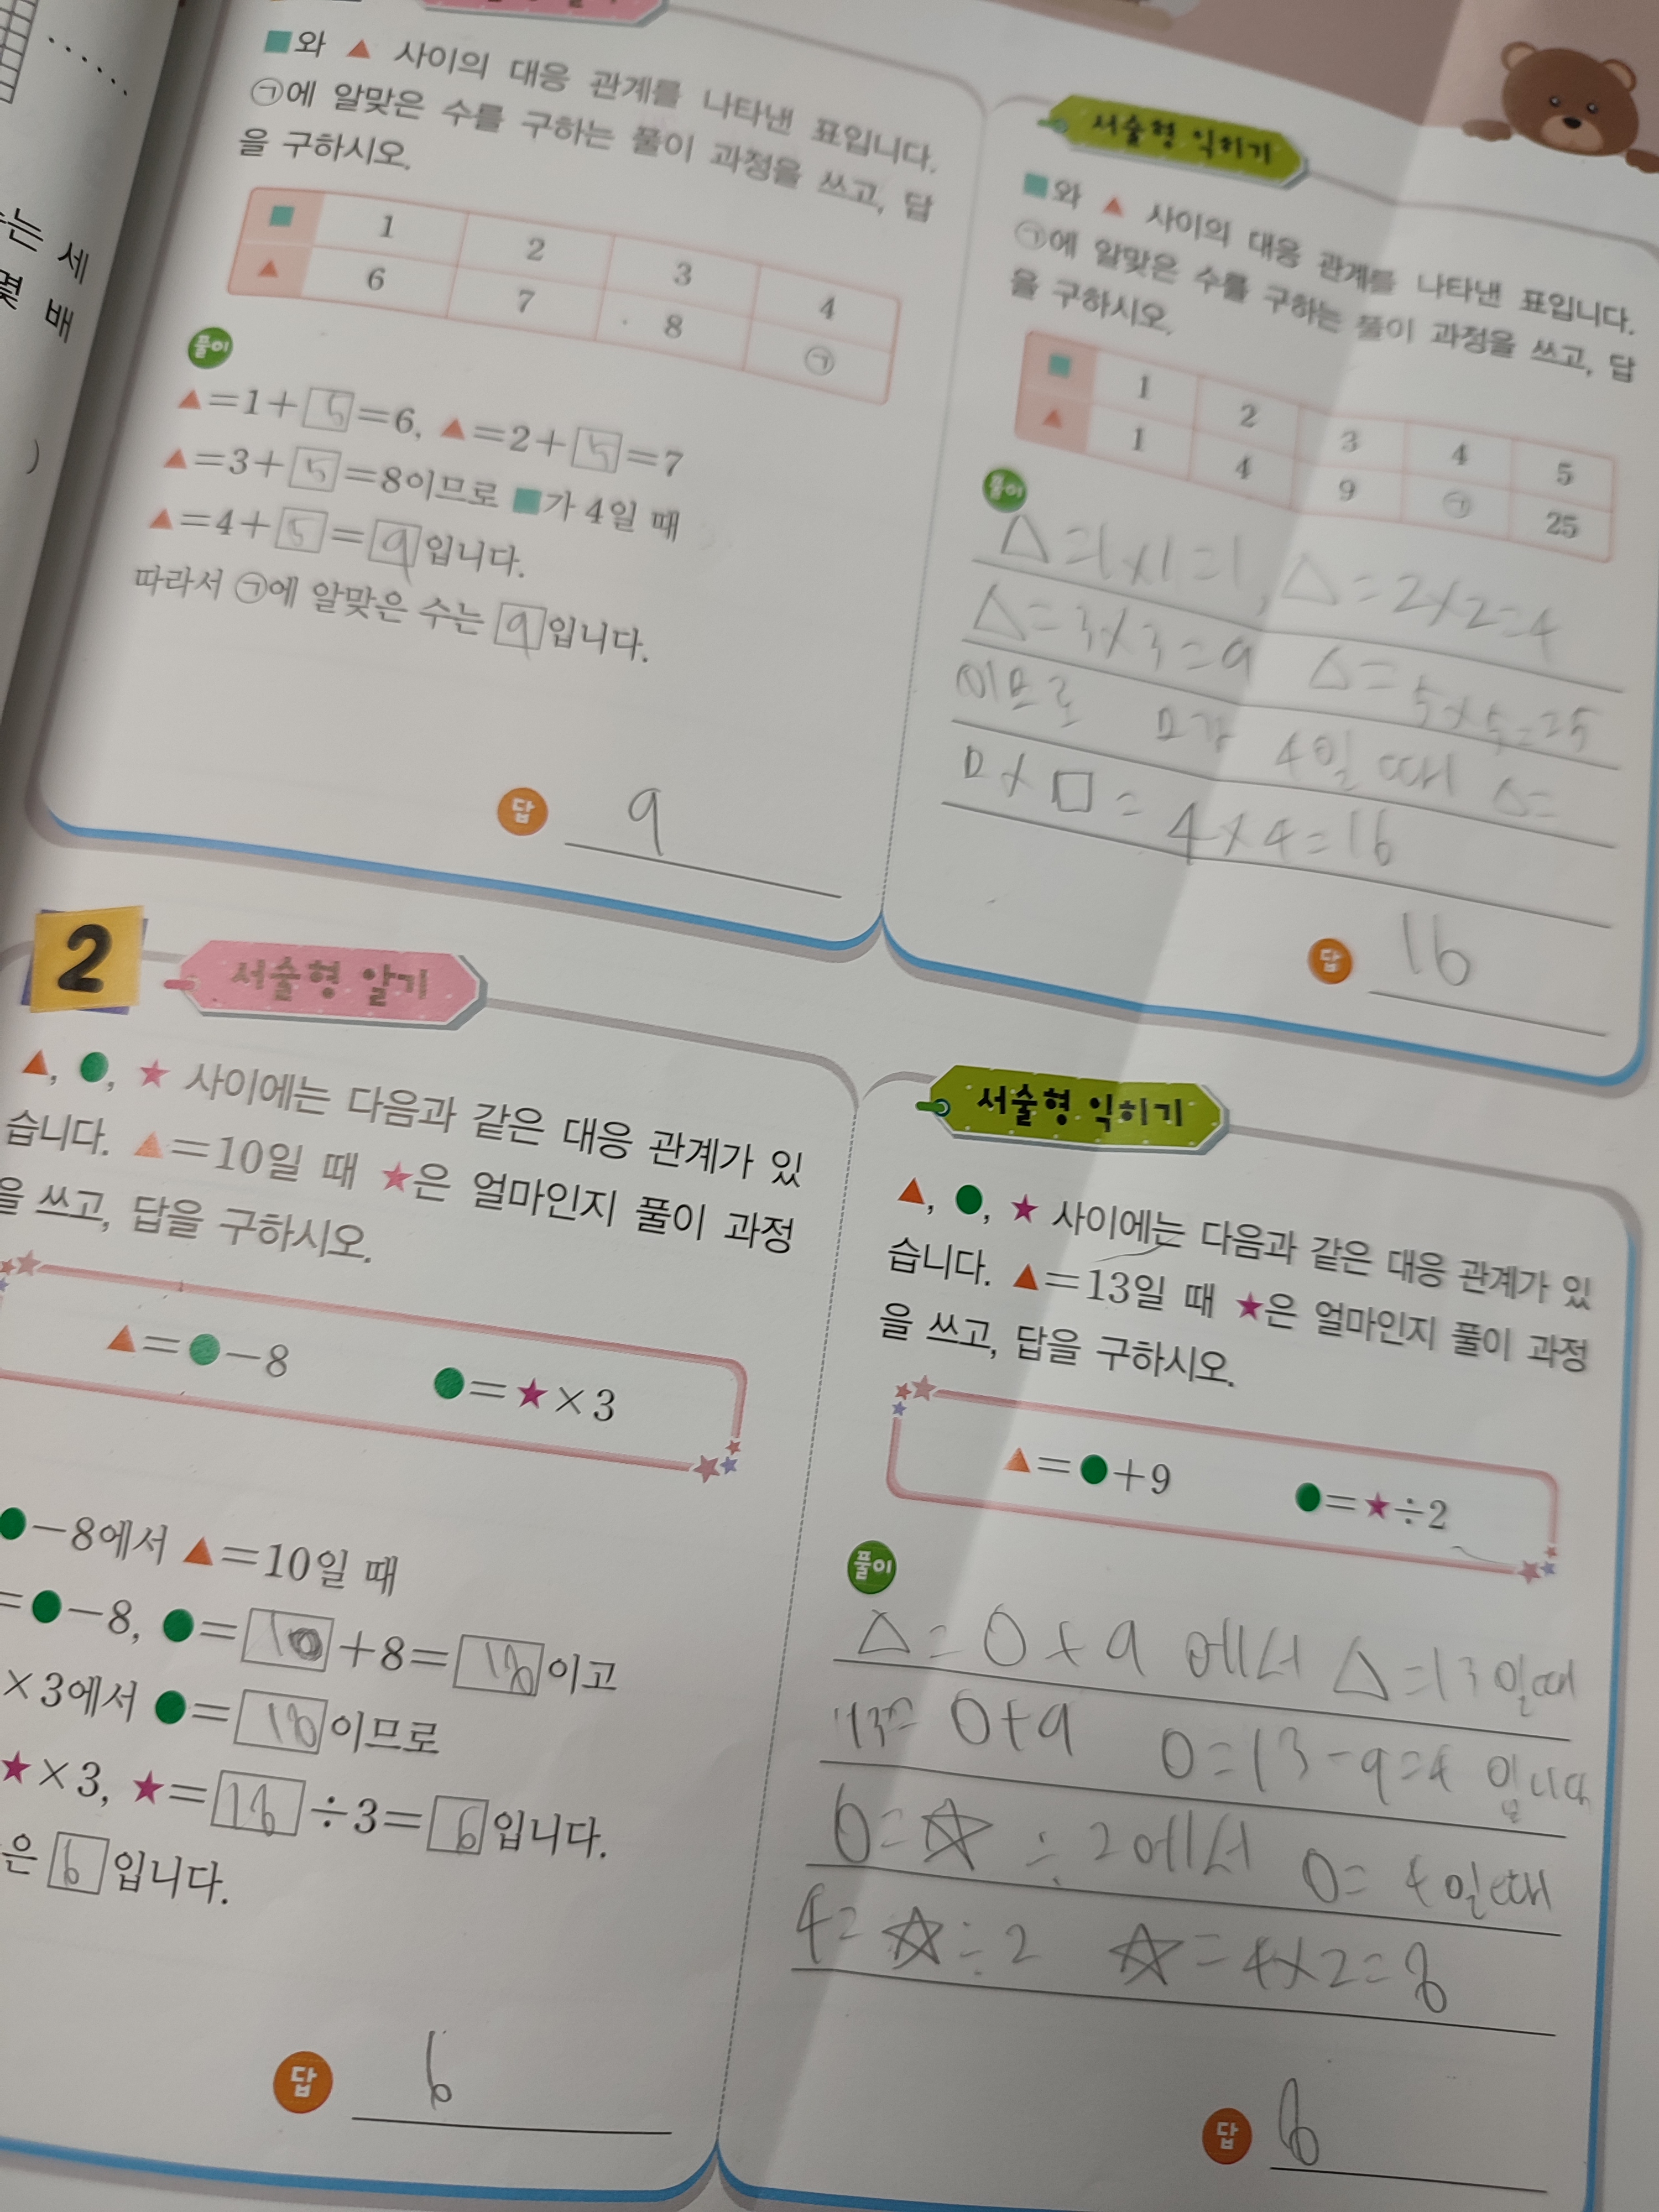 ■와 ▲ 사이의 대응 관계를 나타낸 표입니다.
㉠에 알맞은 수를 구하는 풀이 과정을 쓰고, 답
을 구하시오.
■ 1 2 3 4
▲ 6 7 8 ㉠
풀이
▲=1+5=6, ▲=2+5=7
▲=3+5=8이므로 ■가 4일 때
▲=4+5=9입니다.
따라서 ㉠에 알맞은 수는 9입니다.
답 9
서술형 익히기
■와 ▲ 사이의 대응 관계를 나타낸 표입니다.
㉠에 알맞은 수를 구하는 풀이 과정을 쓰고, 답
을 구하시오.
■ 1 2 3 4 5
▲ 1 4 9 ㉠ 25
풀이
△=1×1=1, △=2×2=4
△=3×3=9 △=5×5=25
이므로 □가 4일 때 △=
□×□=4×4=16
답 16
2 서술형 알기
▲, ●, ★ 사이에는 다음과 같은 대응 관계가 있
습니다. ▲=10일 때 ★은 얼마인지 풀이 과정
을 쓰고, 답을 구하시오.
▲=●-8 ●=★×3
●-8에서 ▲=10일 때
=●-8, ●=10+8=18이고
×3에서 ●=18이므로
★×3, ★=18÷3=6입니다.
은 6입니다.
답 6
서술형 익히기
▲, ●, ★ 사이에는 다음과 같은 대응 관계가 있
습니다. ▲=13일 때 ★은 얼마인지 풀이 과정
을 쓰고, 답을 구하시오.
▲=●+9 ●=★÷2
풀이
△=○+9 에서 △=13일때
13=○+9 ○=13-9=4 입니다
○=☆÷2에서 ○=4일때
4=☆÷2 ☆=4×2=8
답
는 세
몇 배
)